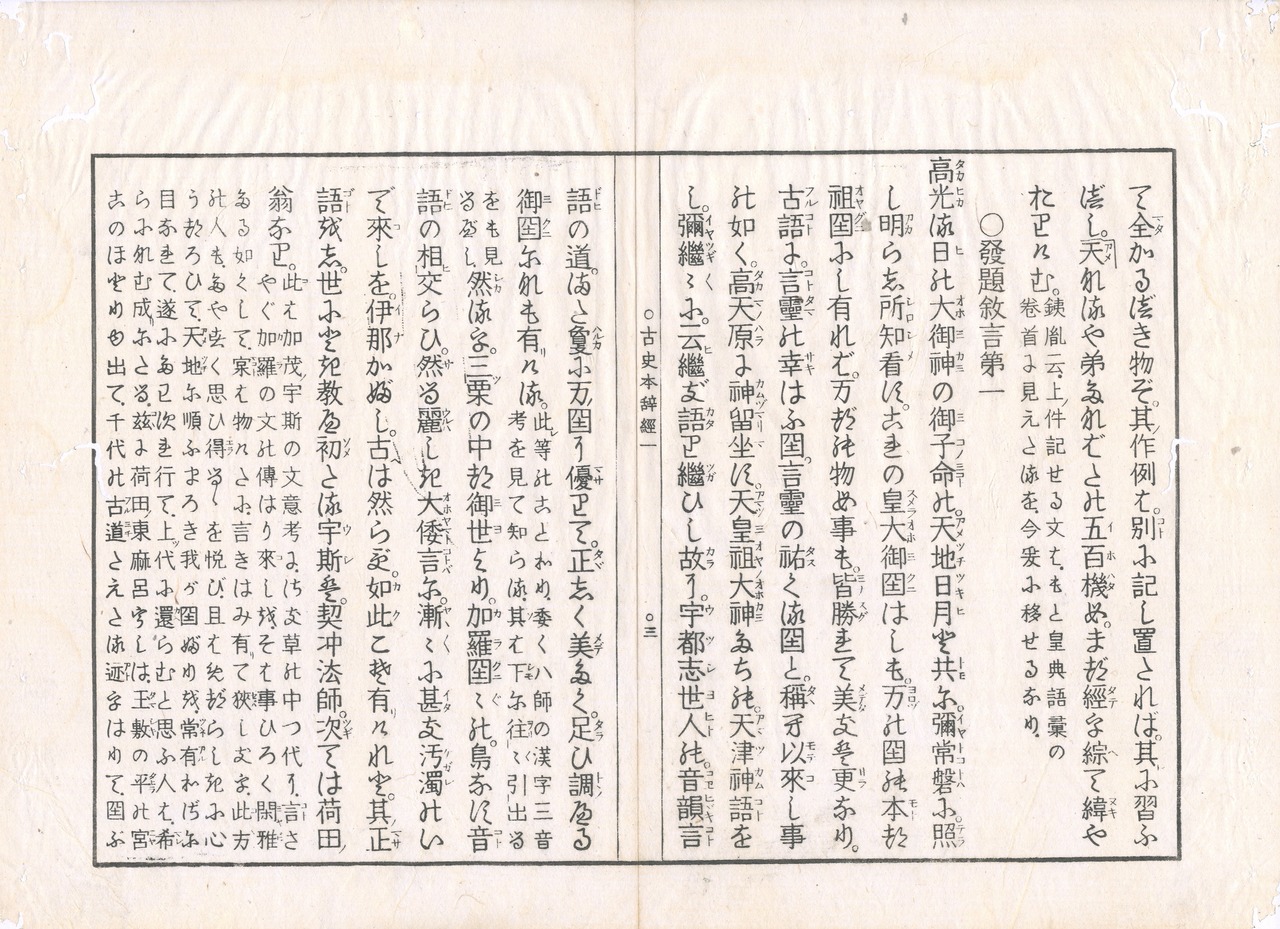 て全かるべき物ぞ。其作例は。別に記し置たれば。其に習ふ
べし。天なるや弟たなばたの五百機ぬ。まづ經を綜て緯や
おりけむ。銕胤云。上件記せる文は。もと皇典語彙の
卷首に見えたるを。今爰に移せるなり。
〇發題敘言第一
高光る日の大御神の御子命の。天地日月と共に。彌常磐に照
し明らし所知看す。これの皇大御国はしも。万の国の本つ
祖国にし有れば。万づの物ぬ事も。皆勝れて美きが更なり。
古語に。言靈の幸はふ国。言靈の祐くる国と。稱て以來し事
の如く。高天原に神留坐す。天皇祖大神たちの。天津神語を
し。彌繼〻に。云繼ぎ語り繼ひし故に。宇都志世人の。音韻言
〇古史本辭經一
〇三
語の道。はた敻に万国に優りて。正しく美たく。足ひ調へる
御国になも有ける。此等のことわり。委く八師の漢字三音
考を見て知らる。其は下に往〻引出る
をも見
るべし。然るを。三栗の中つ御世より。加羅国〻の。鳥なす音
語の相交らひ。然る麗しき大倭言に。漸〻に甚き汚濁のい
で來しを。伊那かぬし。古は然らず。如此こそ有けれと。其正
語をし。世にとき教へ初たる宇斯が。契冲法師。次ては荷田
翁なり。此は加茂宇斯の文意考に。はき草の中つ代に。言さ
やぐ加羅の文の傳はり來しをそは事ひろく閑雅
たる如くして。寔は物けたに言きはみ有て狹しきを。此方
の人も。たやすく思ひ得るを悦び。且はめづらしきに心
うつろひて。天地に順ふまろき我が国ぬりを。常有わざに
目なれて。遂になり次き行て。上代に還らむと思ふ人は。希
らになむ成にたる。茲に荷田東麻呂うしは。玉敷の平の宮
このほとりゆ出て。千代の古道たえたる迹をはりて。国ぶ